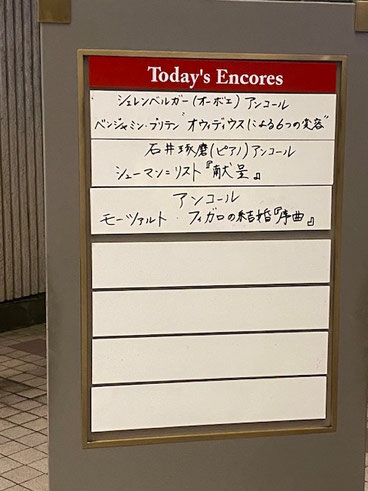 Today's Encores
シェレンベルガー(オーボエ) アンコール
ベンジャミン・ブリテン "オウィディウスによる6つの変容"
石井琢磨(ピアノ)アンコール
シューマン=リスト『献呈』
アンコール
モーツァルト・フィガロの結婚『序曲』